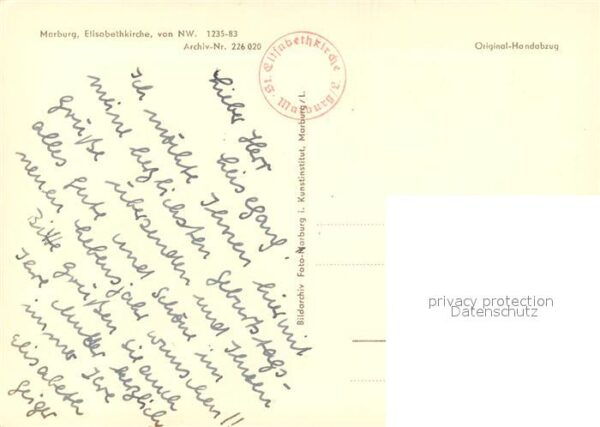 Marburg, Elisabethkirche, von NW. 1235-83
Archiv-Nr. 226 020
Original-Handabzug
St. Elisabethkirche Marburg
Bildarchiv Foto-Marburg i. Kunstinstitut, Marburg/L.
Lieber Herr Leisegang!
Ich möchte Ihnen hiermit
meine herzlichsten Geburtstags-
grüße übersenden und Ihnen
alles Gute und Schöne im
neuen Lebensjahr wünschen!!
Bitte grüßen Sie auch
Ihre Mutter herzlich
immer Ihre
Elisabeth
Geiger
privacy protection
Datenschutz